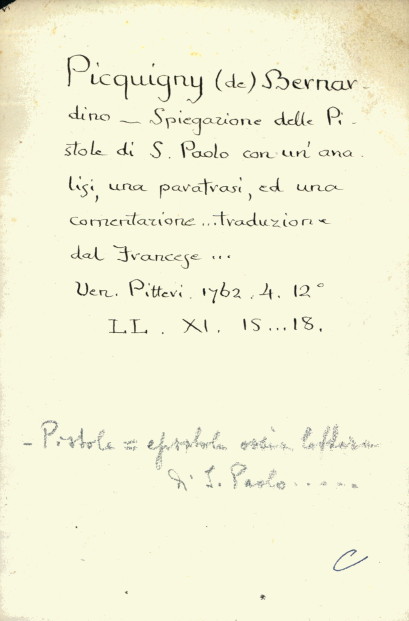 Picquigny (de) Bernar-
dino — Spiegazione delle Pi-
stole di S. Paolo con un' ana-
lisi, una parafrasi, ed una
comentazione ... traduzione
dal Francese ...
Ven. Pitteri. 1762. 4. 12°
LL. XI. 15...18.
- Pistole = epistole ossia lettere
di S. Paolo.....
C